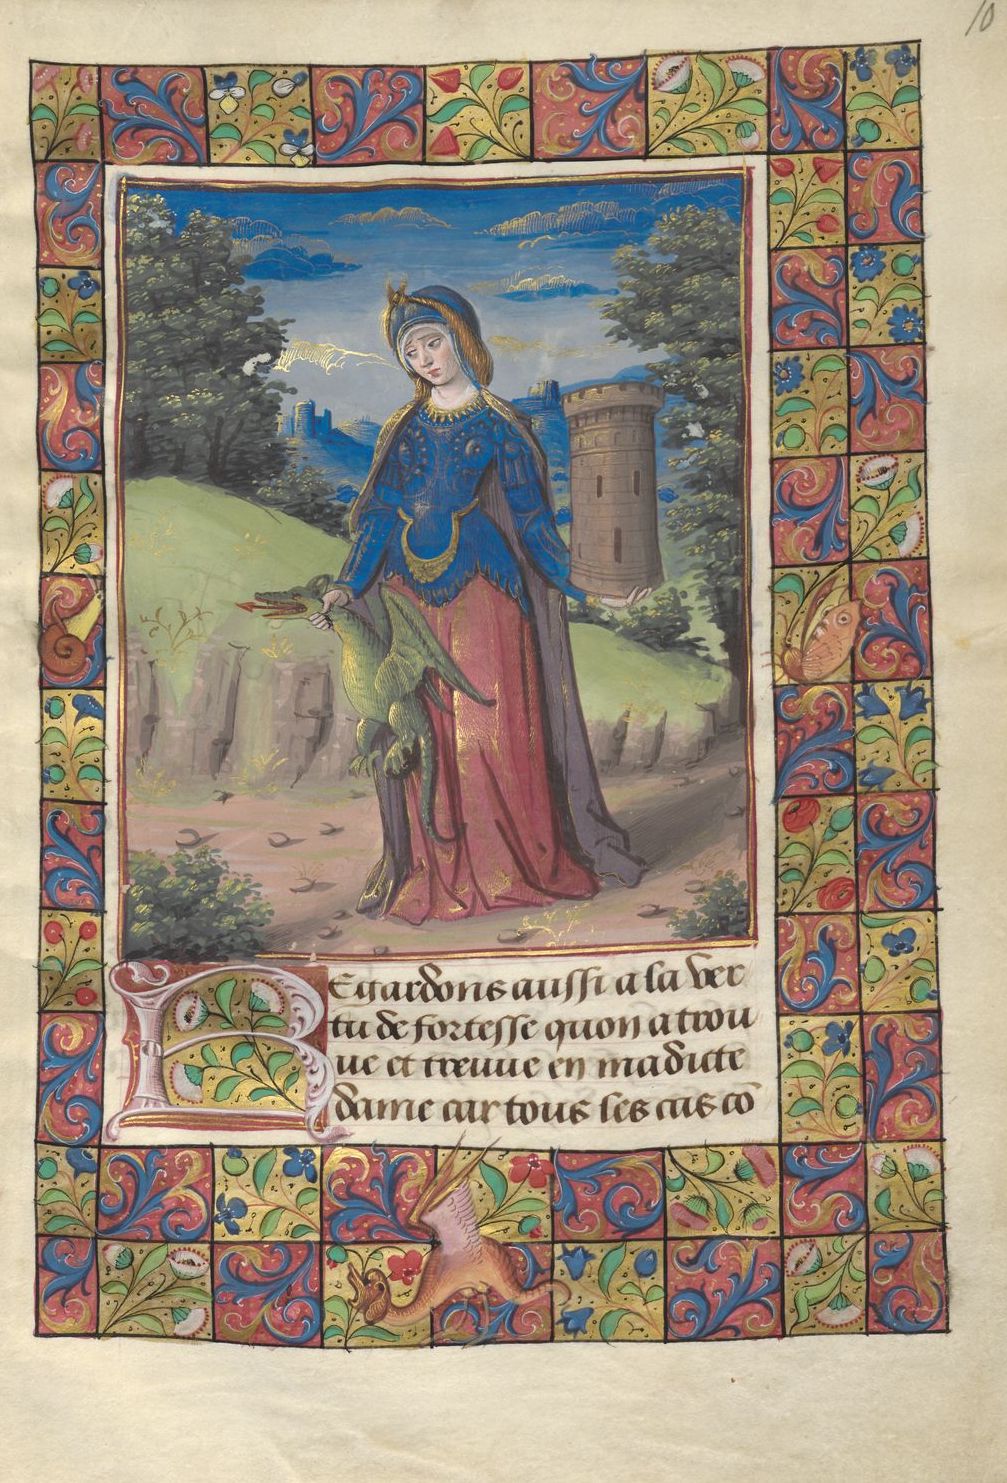 10
Regardons aussi a la ver
tu de fortesse quon a trou
ue et treuue en madicte
dame car tous les cas cō